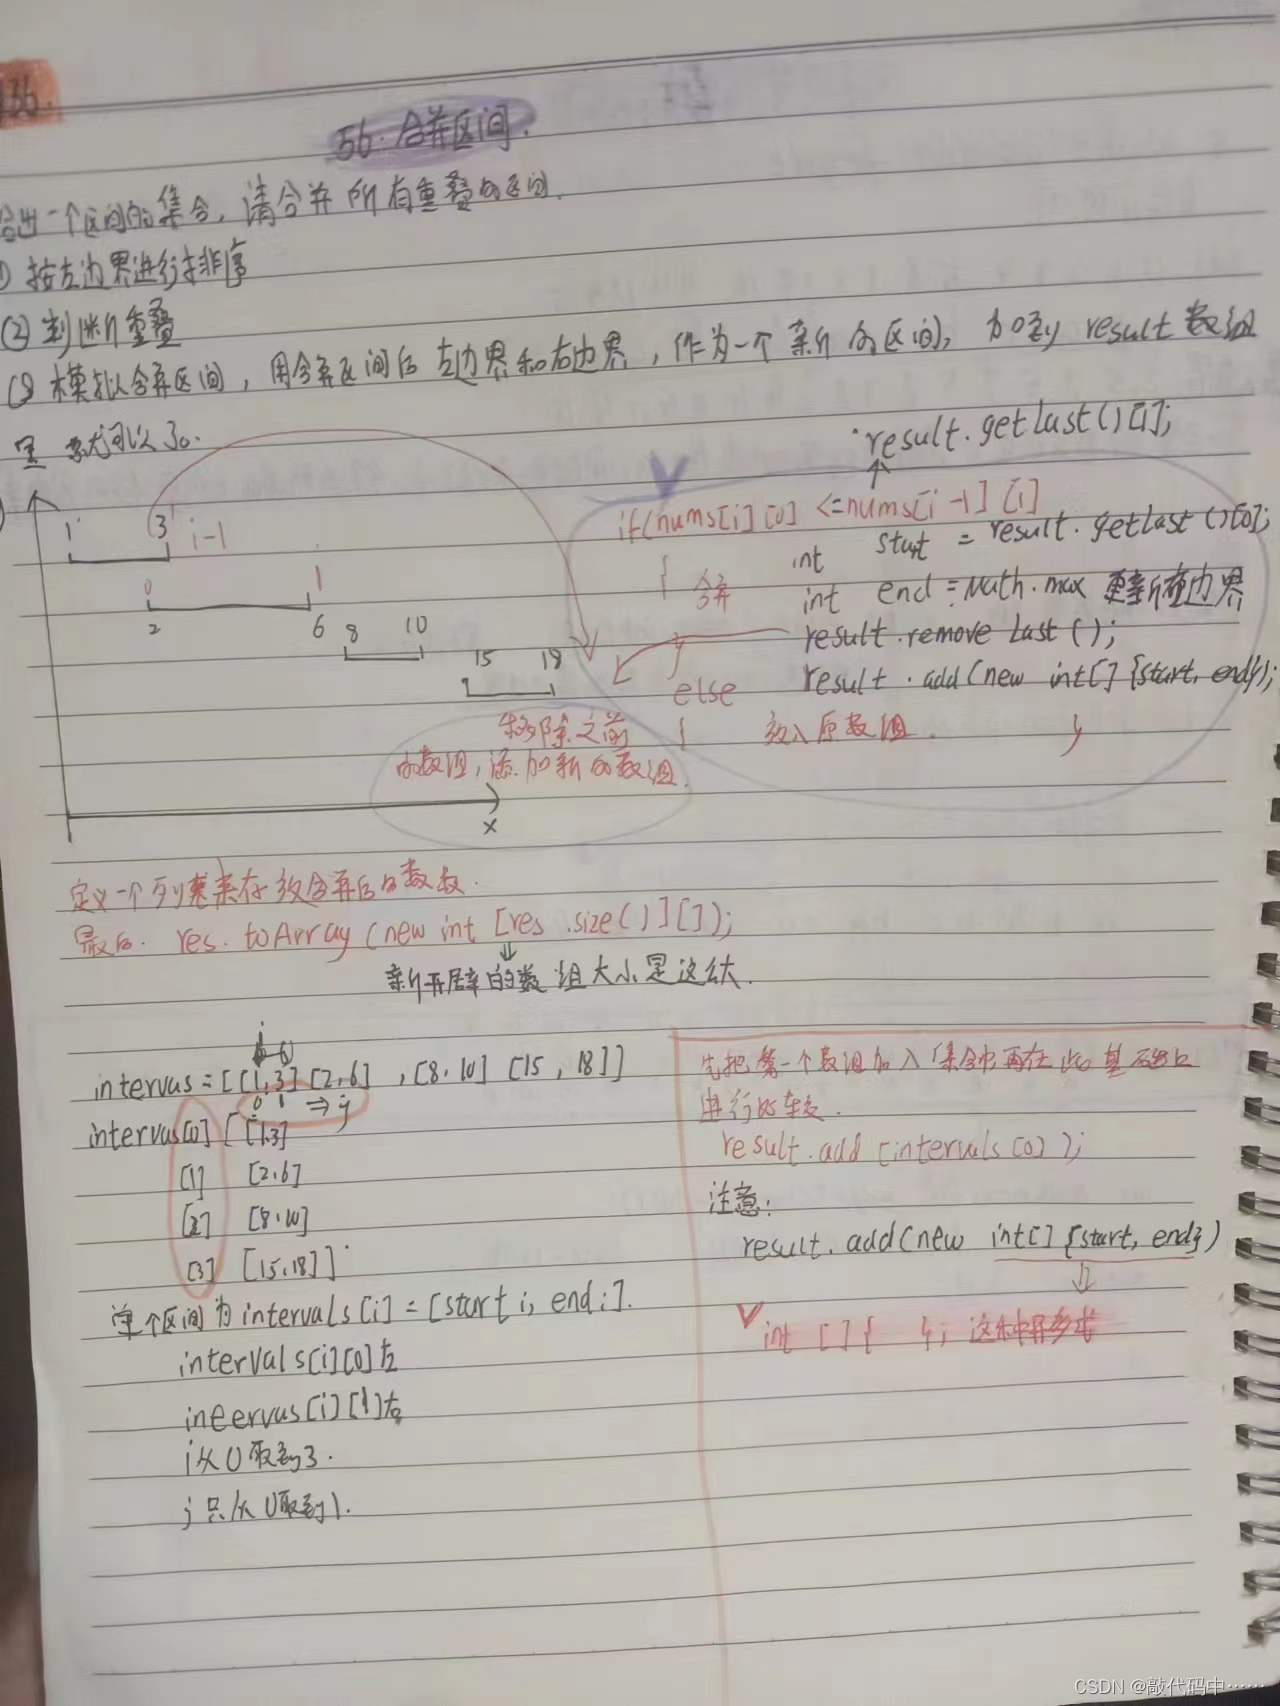 136.
56. 合并区间.
给出一个区间的集合, 请合并所有重叠的区间.
① 按左边界进行排序
(2) 判断重叠
(3) 模拟合并区间, 用合并区间后左边界和右边界, 作为一个新的区间, 加到 result 数组
里 就可以了.
result.getlast()[1];
if(nums[i][0] <=nums[i-1][1]
int start = result.getlast()[0];
{ 合并
int end = Math.max 更新右边界
result.remove Last();
result.add(new int[]{start, end});
else
{ 放入原数组. }
1 3 i-1
0 1
2 6 8 10
15 18
移除之前
的数组, 添加新的数组.
x
定义一个列表来存放合并后的数数.
最后. res.toArray(new int [res.size()][]);
新开辟的数组大小是这么大.
intervas=[[1,3][2,6],[8,10][15,18]]
0 1 ⇒j
intervas[0] [[1,3]
[1] [2,6]
[2] [8,10]
[3] [15,18]]
单个区间为intervals[i]=[start i, end i].
intervals[i][0]左
ineervas[i][1]右
i从0取到3.
j只从0取到1.
先把第一个数组加入集合中,再在此基础上
进行比较.
result.add(intervals[0]);
注意:
result.add(new int[]{start, end})
int []{ }; 这种形式
CSDN @敲代码中……